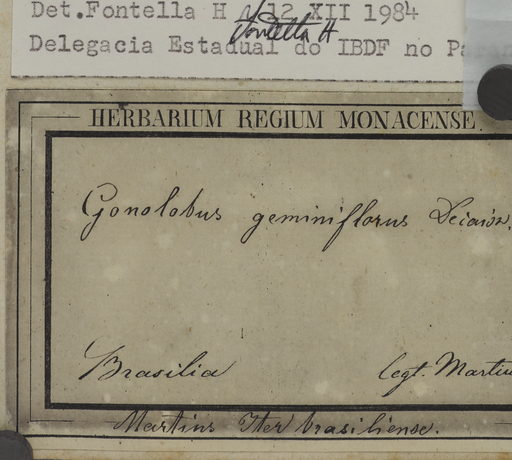 Det.Fontella H 12 XII 1984
Fontella H
Delegacia Estadual do IBDF no Paran
HERBARIUM REGIUM MONACENSE.
Gonolobus geminiflorus Decaisn.
Brasilia legt. Martius
Martius Iter brasiliense.